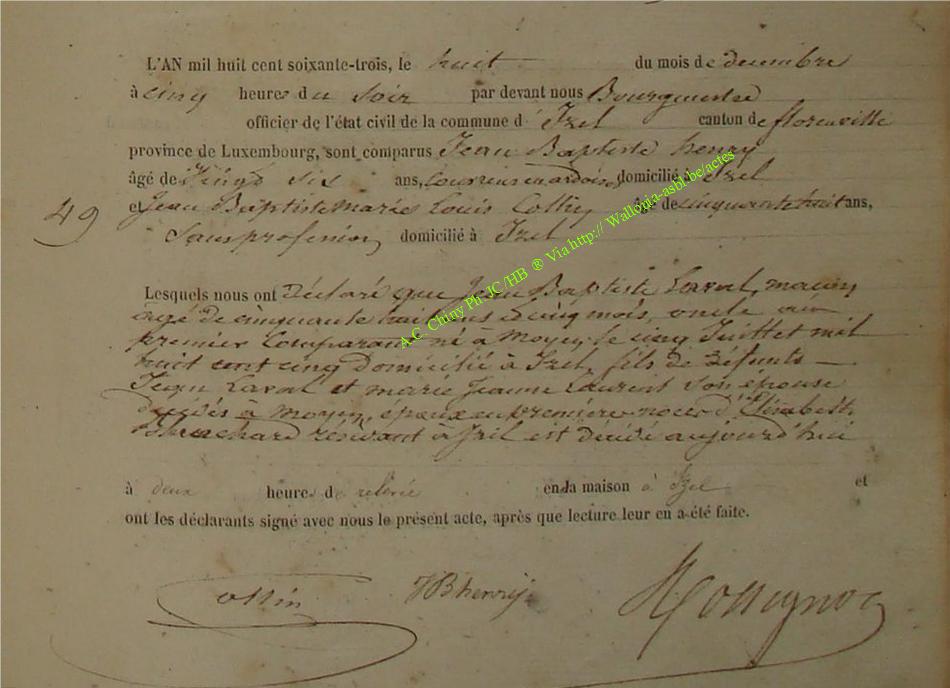 L'AN mil huit cent soixante-trois, le huit du mois de decembre
à cinq heures du soir par devant nous Bourgmestre
officier de l'état civil de la commune d' Izel canton de florenville
province de Luxembourg, sont comparus Jean Baptiste henry
âgé de Vingt six ans, domicilié à Izel
et Jean Baptiste Marie Louis âgé de cinquante huit ans,
49
Sans profession domicilié à Izel
Lesquels nous ont Déclaré que Jean Baptiste Laval, maçon
agé de cinquante huit ans cinq mois, oncle au
premier Comparant né à Moyen, le cinq Juillet mil
huit cent cinq domicilié à Izel, fils de défunts
Jean Laval et marie Jeanne Laurent son épouse
décédés à Moyen, epoux en première noces d'Elisabeth
résidant à Izel est décédé aujourd'hui
à deux heures de relevée en la maison à Izel et
ont les déclarants signé avec nous le présent acte, après que lecture leur en a été faite.
JBhenry
A.C. Chiny Ph JC/HB ® Via http:// Wallonia-asbl.be/actes